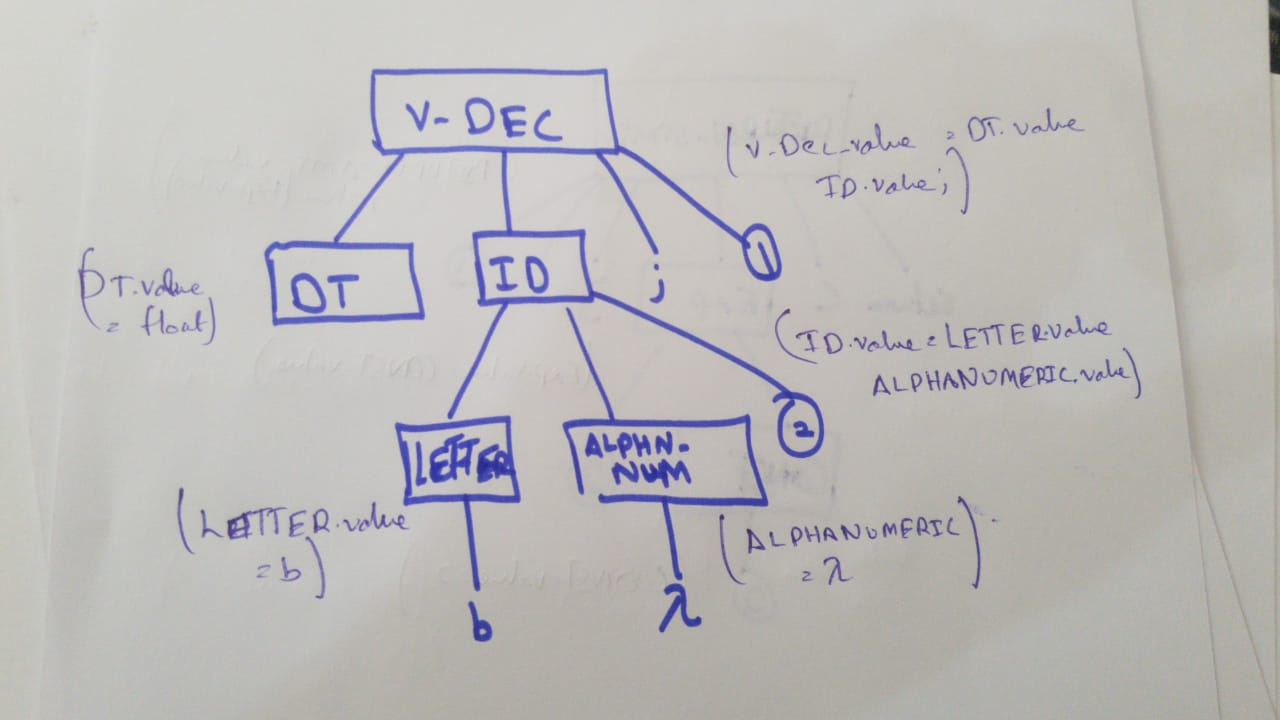 V-DEC
(V-Dec-value = DT.value
ID.value;)
DT
ID
;
1
(DT.value
= float)
(ID.value = LETTER.value
ALPHANUMERIC.value)
LETTER
ALPHN-
NUM
2
(LETTER.value
= b)
(ALPHANUMERIC)
= λ
b
λ